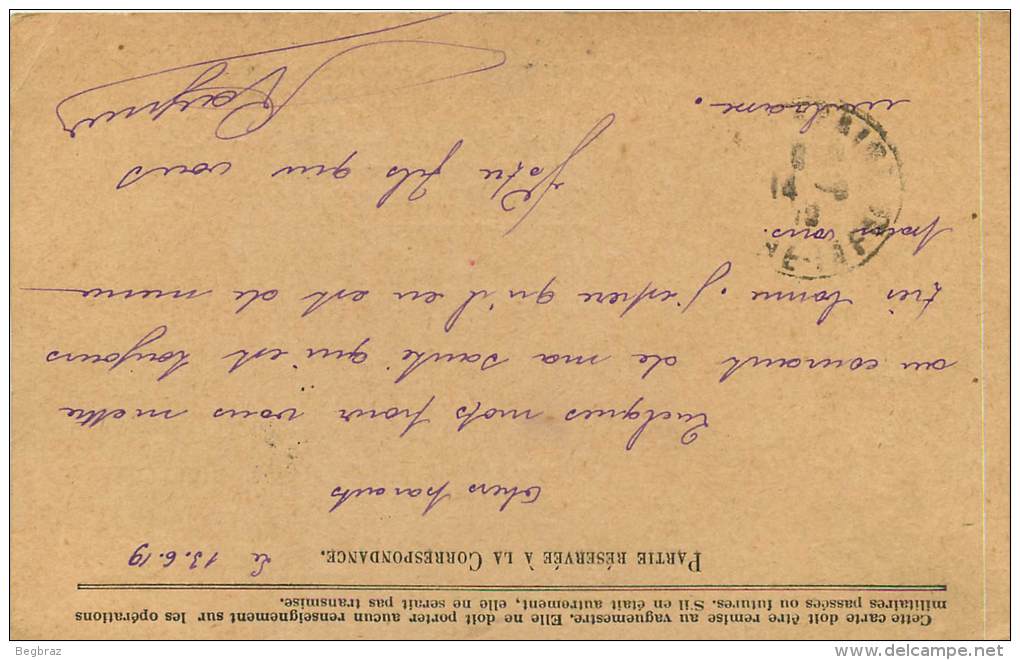 Cette carte doit être remise au vaguemestre. Elle ne doit porter aucun renseignement sur les opérations
militaires passées ou futures. S'il en était autrement, elle ne serait pas transmise.
PARTIE RÉSERVÉE À LA CORRESPONDANCE.
Le 13.6.19
Chers parents
Quelques mots pour vous mettre
au courant de ma santé qui est toujours
très bonne. J'espere qu'il en est de meme
pour vous.
Votre fils qui vous
embrasse.
14
19
Begbraz
delcampe.net